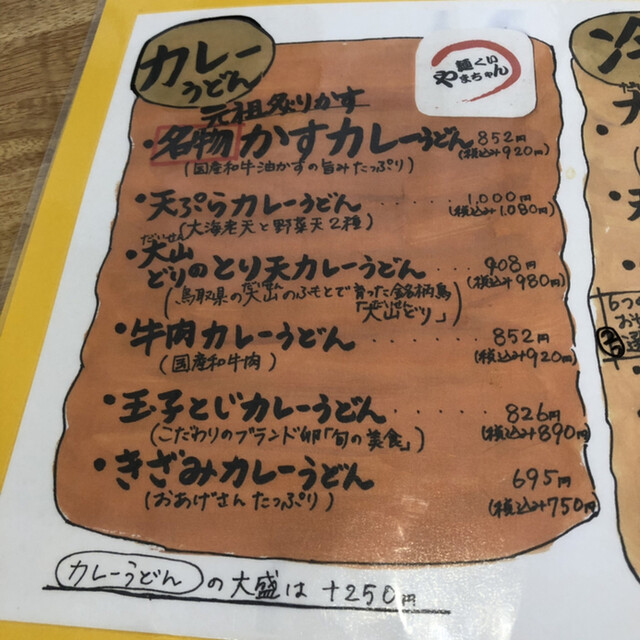 カレー
うどん
麺くい
やまちゃん
元祖炙りかす
・名物かすカレーうどん 852円
(税込み920円)
(国産和牛油かすの旨みたっぷり)
・天ぷらカレーうどん ・・・・ 1,000円
(税込み1,080円)
(大海老天と野菜天2種)
だいせん
・大山
どりのとり天カレーうどん ・・・ 908円
(税込み980円)
(鳥取県の大山のふもとで育った銘柄鳥
「大山どり」)
・牛肉カレーうどん ・・・・・ 852円
(税込み920円)
(国産和牛肉)
・玉子とじカレーうどん ・・・・・ 826円
(税込み890円)
(こだわりのブランド卵「旬の美食」)
・きざみカレーうどん 695円
(税込み750円)
(おあげさんたっぷり)
カレーうどんの大盛は +250円